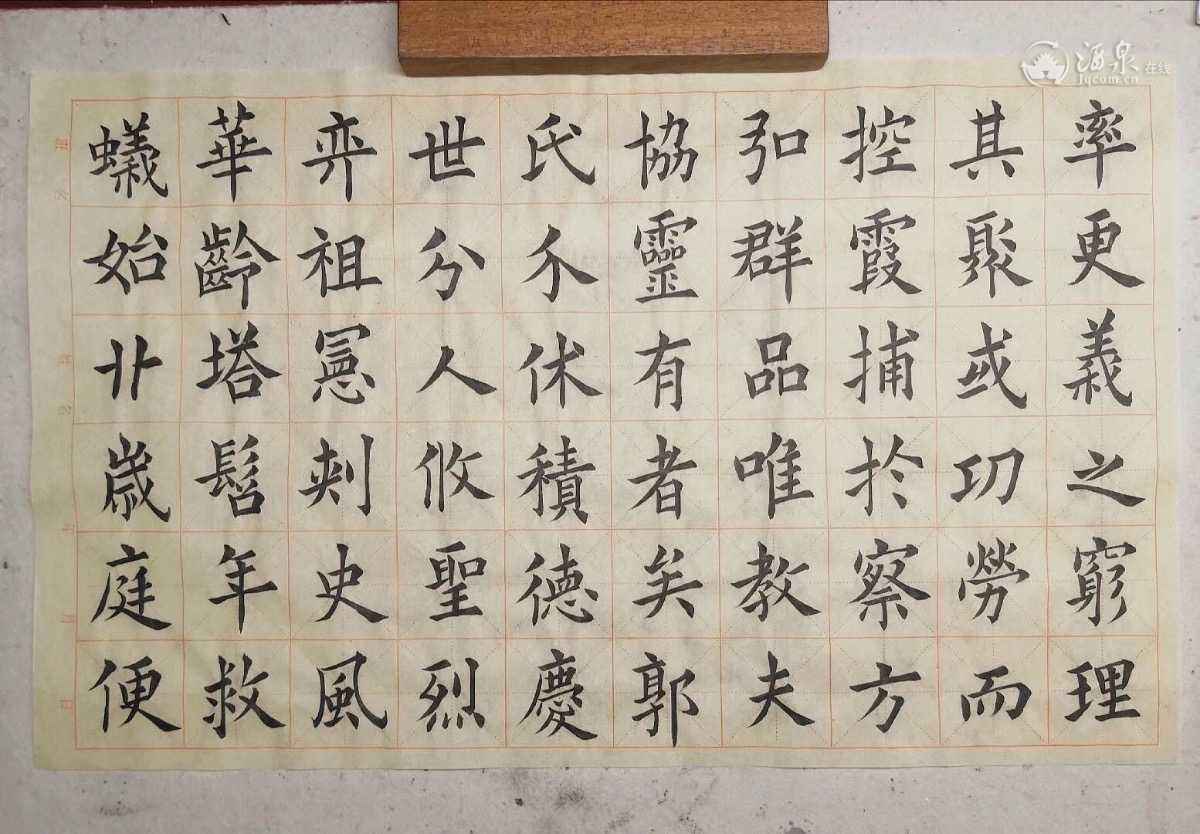 率更義之窮理
其聚或功勞而
控霞捕於察方
弘群品唯教夫
協靈有者矣郭
氏尒休積德慶
世分人攸聖烈
弈祖憲刾史風
華齡塔髫年救
蟻始廿歲庭便
酒泉在线
Jqcom.cn